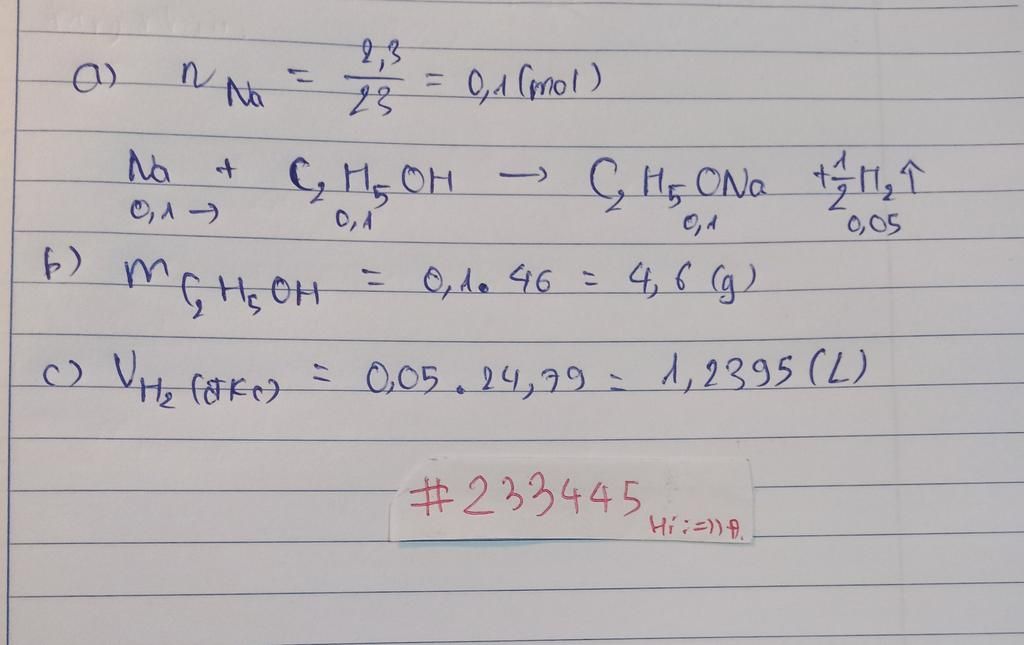 a) n Na = 2,3/23 = 0,1 (mol)
Na + C₂H₅OH → C₂H₅ONa + 1/2 H₂↑
0,1 → 0,1 0,1 0,05
b) m C₂H₅OH = 0,1 . 46 = 4,6 (g)
c) V H₂ (đkc) = 0,05 . 24,79 = 1,2395 (L)
#233445
Hi :=))